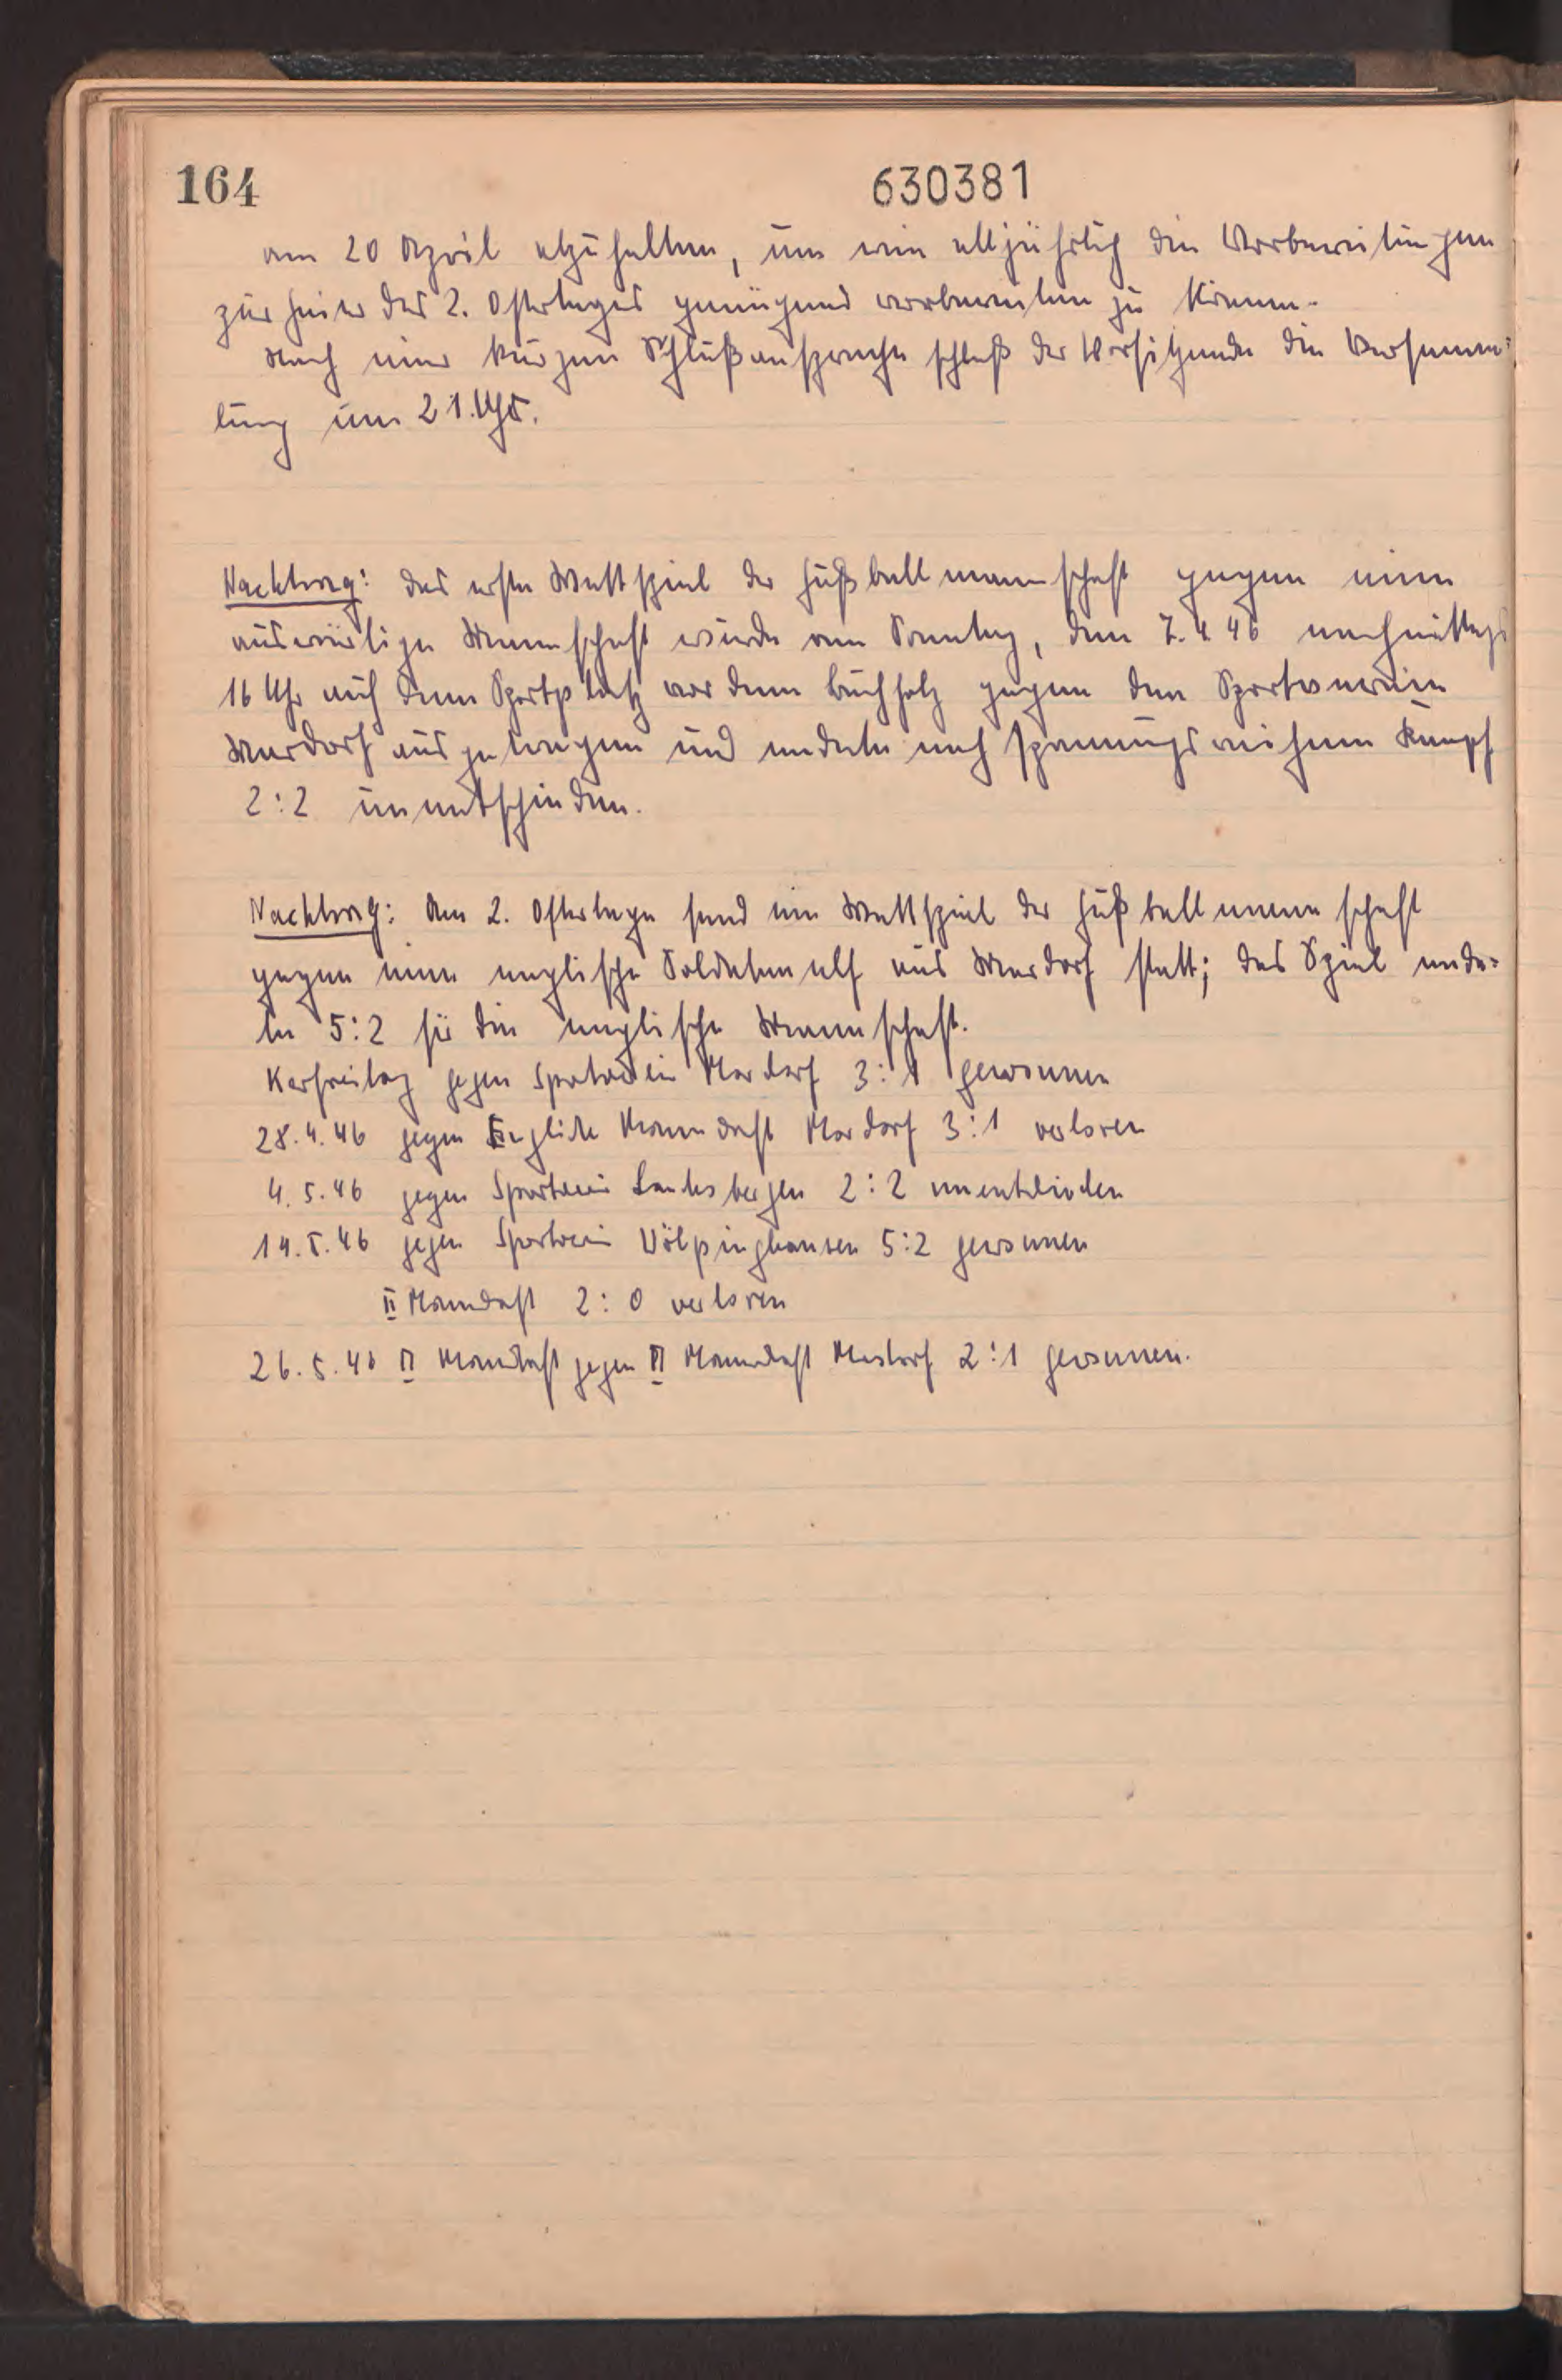 164
630381
am 20 April abzuhalten, um wie alljährlich die Vorbereitungen
zur Feier des 2. Ostertages genügend vorbereiten zu können.
Nach einer kurzen Schlußansprache schloß der Vorsitzende die Versamm=
lung um 21. Uhr.
Nachtrag: das erste Wettspiel der Fußballmannschaft gegen eine
auswärtige Mannschaft wurde am Sonntag, dem 7.4.46 nachmittags
16 Uhr auf dem Sportplatz vor dem Buchholz gegen den Sportverein
Mardorf ausgetragen und endete nach spannungsreichem Kampf
2:2 unentschieden.
Nachtrag: Am 2. Ostertage fand ein Wettspiel der Fußballmannschaft
gegen eine englische Soldatenelf aus Mardorf statt; das Spiel ende=
te 5:2 für die englische Mannschaft.
Karfreitag gegen Sportverein Mardorf 3:1 gewonnen
28.4.46 gegen Englische Mannschaft Mardorf 3:1 verloren
4.5.46 gegen Sportverein Landesbergen 2:2 unentschieden
14.5.46 gegen Sportverein Völpinghausen 5:2 gewonnen
II Mannschaft 2:0 verloren
26.5.46 II Mannschaft gegen II Mannschaft Mardorf 2:1 gewonnen.